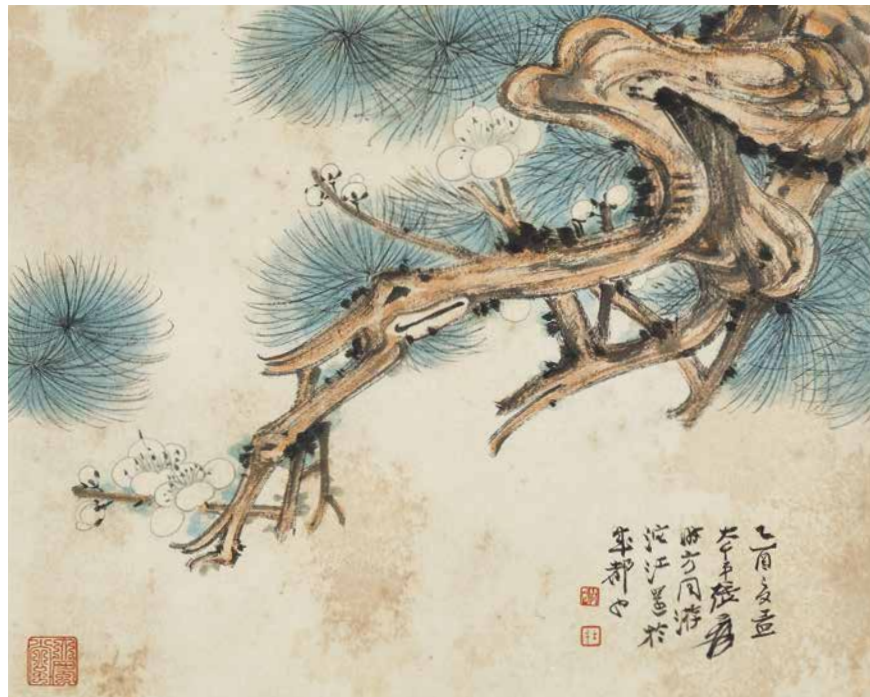 乙酉夏孟
大千弟張爰
時方同游
沱江還於
成都也